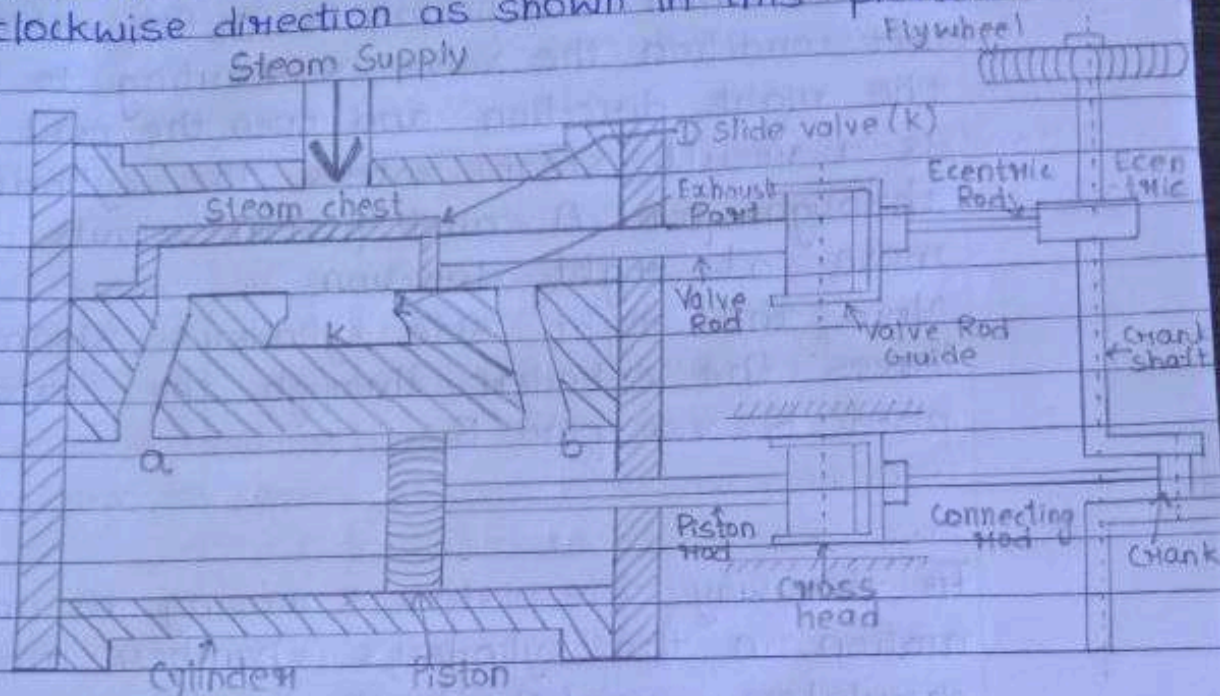 clockwise direction as shown in this
Flywheel
Steam Supply
D Slide valve (K)
Steam chest
Exhaust
Port
Ecentric
Rody
Ecen
tric
K
Valve
Rod
Valve Rod
Guide
Crank
shaft
a
b
Piston
rod
Connecting
rod
Crank
Cross
head
Cylinder
Piston